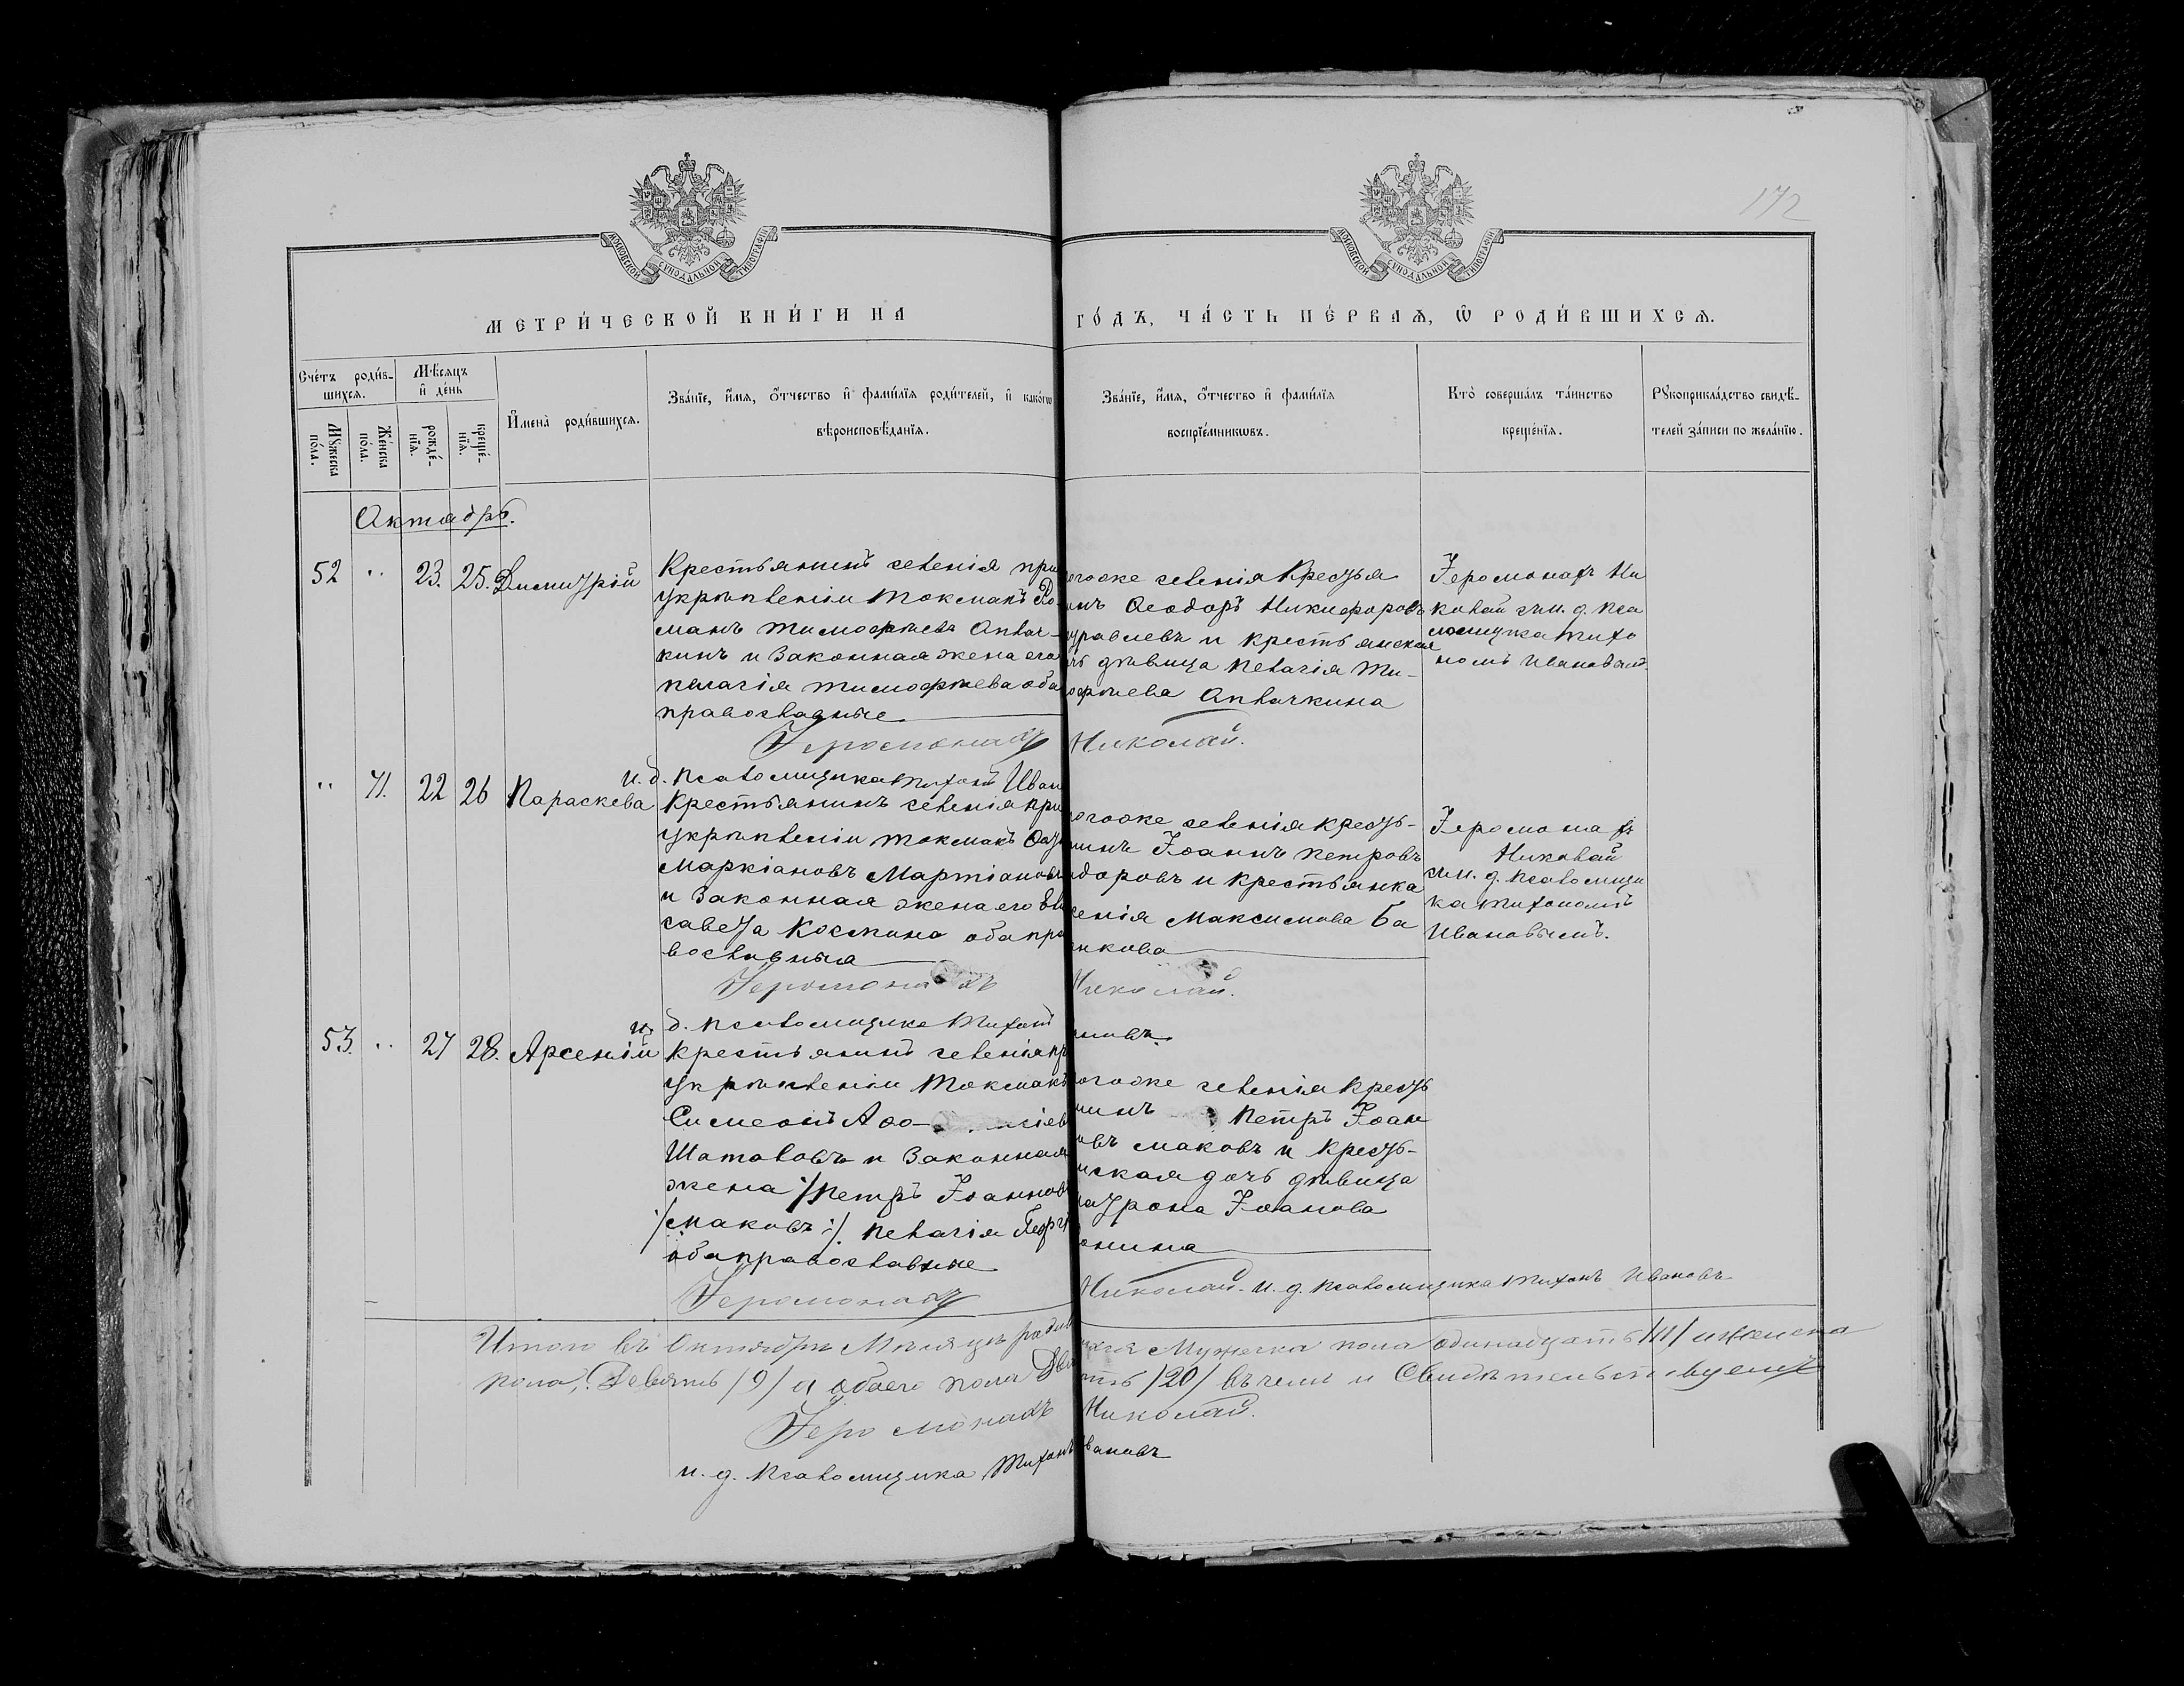 172
МОСКОВСКОЙ СѴНОДАЛЬНОЙ ТИПОГРАФІИ
МОСКОВСКОЙ СѴНОДАЛЬНОЙ ТИПОГРАФІИ
МЕТРИ́ЧЕСКОЙ КНИ́ГИ НА
ГО́ДЪ, ЧА́СТЬ ПЕ́РВАѦ, Ѿ РОДИ́ВШИХСѦ.
Сче́тъ роди́в-
шихсѧ.
Мѣ́сяцъ
и҆ де́нь
Мꙋжеска
по́ла.
Же́нска
по́ла.
рожде́-
нїѧ.
креще́-
нїѧ.
И҆мена̀ роди́вшихсѧ.
Зва́нїе, и҆́мѧ, ѻ҆́тчество и҆ фами́лїѧ роди́телей, и҆ како́гѡ
вѣроисповѣ́данїѧ.
Зва́нїе, и҆́мѧ, ѻ҆́тчество и҆ фами́лїѧ
воспрїе́мникѡвъ.
Кто̀ соверша́лъ та́инство
креще́нїѧ.
Рꙋкоприкла́дство свидѣ́-
телей за́писи по жела́нїю.
Октябрь.
52 " 23. 25. Димитрій
Крестьянинъ селенія при
укрѣпленіи Токмакъ Ро-
манъ Тимофѣевъ Оплач-
кинъ и законная жена его
Пелагія Тимофѣева оба
православные
огоже селенія Крестья
инъ Ѳеодоръ Никифоровъ
уравлевъ и крестьянская
чь дѣвица Пелагія Ти-
офѣева Оплачкина
Іеромонахъ Ни
колай съ и. д. Пса
ломщика Тихо
номъ Ивановымъ
Іеромонахъ Николай.
и. д. Псаломщика Тихонъ Иван
" 41. 22 26 Параскева
Крестьянинъ селенія при
укрѣпленіи Токмакъ
Маркіановъ Мартіановъ
и законная жена его Ели
савета Космина оба пра
вославныя
огоже селенія Кресть-
нинъ Іоаннъ Петровъ
доровъ и крестьянка
сенія Максимова Ба
нкова
Іеромонахъ
Николай
съ и. д. Псаломщи
ка Тихономъ
Ивановымъ.
Іеромонахъ Николай.
и. д. Псаломщика Тихонъ
новъ.
53. " 27 28. Арсеній
Крестьянинъ селенія пр
укрѣпленіи Токмакъ
Симеонъ
Шаталовъ и законная
жена /Петръ Іоаннов
/Смаковъ:/. Пелагія Георг
оба православные
огоже селенія Кресть
нинъ Петръ Іоан
овъ маковъ и Кресть-
нская дочь дѣвица
атрона Іоанова
онина
Іеромонахъ Николай. и. д. Псаломщика Тихонъ Ивановъ
Итого въ Октябрѣ Мѣсяцѣ родив
ихся Мужеска пола одинадцать /11/ и женска
пола, Девять /9/ а обоего пола Два
ть /20/ въ чемъ и Свидѣтельствуемъ
Іеромонахъ Николай.
и. д. Псаломщика Тихонъ Ивановъ